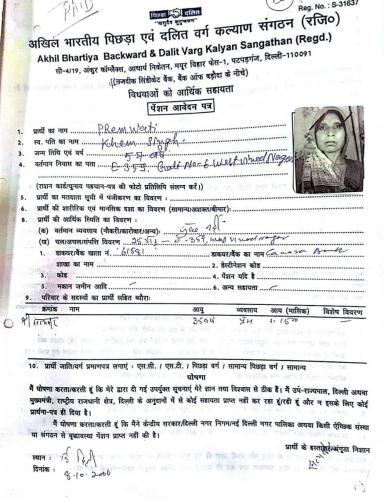 PhD
पिछड़ा दलित
Reg. No.: S-31637
अखिल भारतीय पिछड़ा एवं दलित वर्ग कल्याण संगठन (रजि०)
Akhil Bhartiya Backward & Dalit Varg Kalyan Sangathan (Regd.)
सी-4/19, अंकुर कॉम्प्लैक्स, आचार्य निकेतन, मयूर विहार फेस-1, पटपड़गंज, दिल्ली-110091
(नजदीक सिंडीकेट बैंक, बैंक ऑफ बड़ौदा के नीचे)
विधवाओं को आर्थिक सहायता
पेंशन आवेदन पत्र
1. प्रार्थी का नाम Prem Wati
2. स्व. पति का नाम Khem Singh
3. जन्म तिथि एवं वर्ष
4. वर्तमान निवास का पता E-359, Gali No-6 West Vinod Nagar
(राशन कार्ड/चुनाव पहचान-पत्र की फोटो प्रतिलिपि संलग्न करें।)
5. प्रार्थी का मतदाता सूची में पंजीकरण का विवरण :
6. प्रार्थी की शारीरिक एवं मानसिक दशा का विवरण (सामान्य/अशक्त/बीमार)
8. प्रार्थी की आर्थिक स्थिति का विवरण :
(क) वर्तमान व्यवसाय (नौकरी/कारोबार/अन्य) :
(ख) चल/अचल/संपत्ति विवरण E-359, West vinod nagar
1. डाकघर/बैंक खाता नं. 61581 डाकघर/बैंक का नाम Canara Bank
शाखा का नाम 2. डेस्टीनेशन कोड
3. कोड 4. पेंशन यदि है
5. मकान जमीन आदि 6. अन्य सहायता
9. परिवार के सदस्यों का प्रार्थी सहित ब्यौरा:
क्रमांक नाम आयु व्यवसाय आय (मासिक) विशेष विवरण
10. प्रार्थी जाति/वर्ग प्रमाणपत्र लगाएं : एस.सी. / एस.टी. / पिछड़ा वर्ग / सामान्य पिछड़ा वर्ग / सामान्य
घोषणा
मैं घोषणा करता/करती हूं कि मेरे द्वारा दी गई उपर्युक्त सूचनाएं मेरे ज्ञान तथा विश्वास से ठीक हैं। मैं उप-राज्यपाल, दिल्ली अथवा
मुख्यमंत्री, राष्ट्रीय राजधानी क्षेत्र, दिल्ली के अनुदानों में से कोई सहायता प्राप्त नहीं कर रहा हूं/रही हूं और न इसके लिए कोई
प्रार्थना-पत्र ही दिया है।
मैं घोषणा करता/करती हूं कि मैंने केन्द्रीय सरकार/दिल्ली नगर निगम/नई दिल्ली नगर पालिका अथवा किसी ऐच्छिक संस्था
या संगठन से वृद्धावस्था पेंशन प्राप्त नहीं की है।
प्रार्थी के हस्ताक्षर/अंगूठा निशान
स्थान : दिल्ली
दिनांक : 8-10-2000